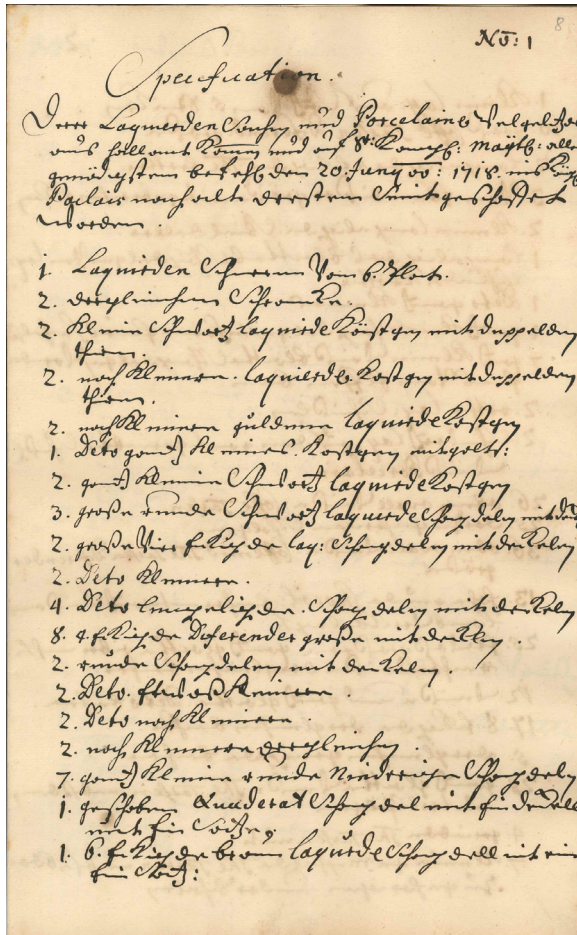 8
No: 1
Specification.
Derer Laqvierden Sachen und Porcelaine
aus holland Komen und auf Sr: Königl: Mayt: aller
genädigstem befehl den 20. Juny 1718. ins
Pallais nach alt dresten seint geschaffet
worden.
1. Laqvirden Schirm Von 6. Plat.
2. dergleichen Schrancke.
2. Kleine Schwartz laqvirde Köstgen mit duppelden
thüren.
2. noch Kleinere. laqvierde Kostgen mit duppelden
thüren.
2. noch Kleinere guldene laqvirde Kostgen
1. Deto gantz Kleines. Kostgen mit golt:
2. gantz Kleine Schwartz laqvirde Kostgen
3. große runde Schwartz laqvierde Schagdeln mit
2. große Vier Eckigde laq: Schagdeln mit deckeln
2. Deto Kleinere.
4. Deto Schagdeln mit deckeln
8. 4. Eckigde große mit deckeln.
2. runde Schagdelen mit deckeln.
2. Deto. Etwaß Kleinere.
2. Deto noch Kleinere.
2. noch Kleinere dergleichen.
7. gantz Kleine runde Niederige Schagdeln
1. geschobene Quaderat Schagdel mit
mit Ein Sätze.
1. 6. Eckigde braun laqvirde Schagdell mit
Ein Sätz: